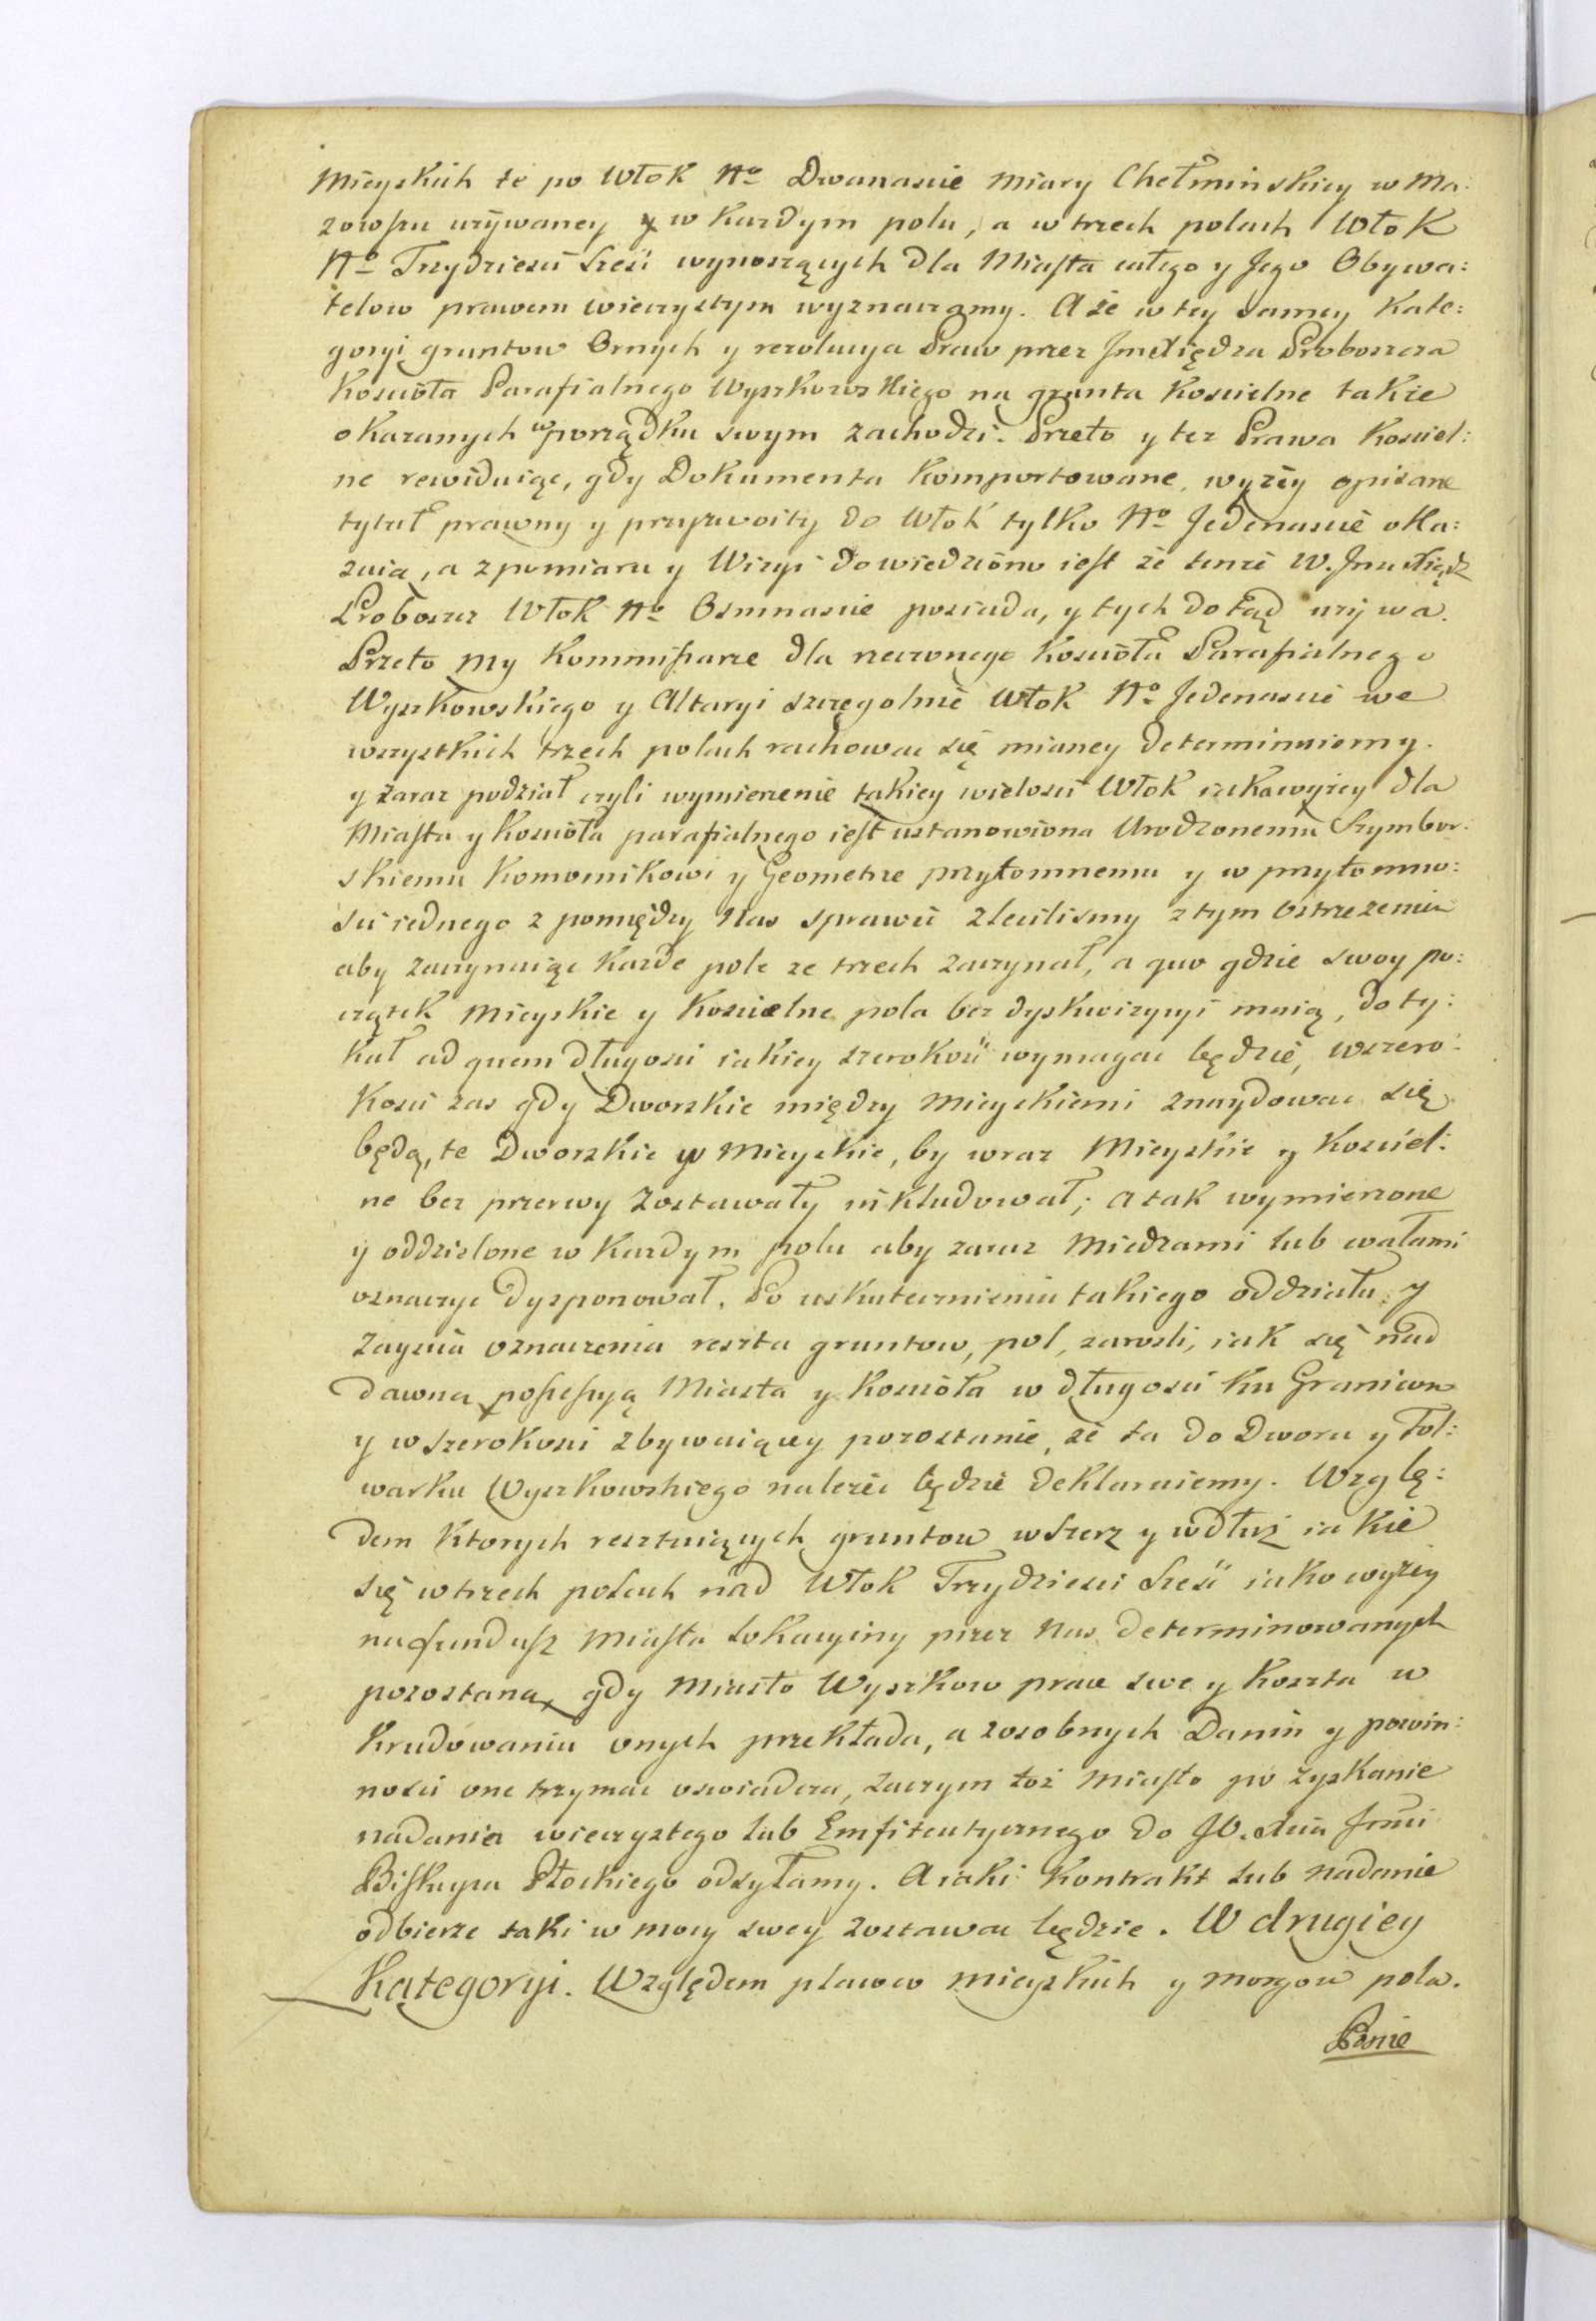 Mieyskich te po Włok No Dwanascie miary Chełminskiey w Ma:
zowszu używaney y w każdym polu, a w trzech polach Włok
No Trzydziesci sześć wynoszących dla Miasta całego y Jego Obywa:
telow prawem wieczystym wyznaczamy. A że w tey samey Kate:
goryi gruntow Ornych y rezolucya Praw przez Jmć Xiędza Proboszcza
Kościoła Parafialnego Wyszkowskiego na grunta Kościelne takze
okazanych w porządku swym zachodzi. Przeto y tez Prawa Kosciel:
ne rewiduiąc, gdy Dokumenta komportowane, wyżey opisane
tytuł prawny y przyzwoity do Włok tylko No Jedenascie oka:
zuią, a z pomiaru y Wizyi dowiedziono iest że tenże W. Jmć Xiądz
Proboszcz Włok No Osmnascie posiada, y tych dotąd używa.
Przeto my Kommissarze dla rzeczonego Kościoła Parafialnego
Wyszkowskiego y Altaryi szczegolnie Włok No Jedenascie we
wszystkich trzech polach rachować się mianey determinuiemy.
y zaraz podział czyli wymierzenie takiey wielości Włok iak wyżey dla
Miasta y Kościoła parafialnego iest ustanowiona Urodzonemu Szymbor:
skiemu Komornikowi y Geometrze przytomnemu y w przytomno:
ści iednego z pomiędzy Nas sprawić zleciliśmy z tym ostrzeżenia
aby zaczynaiąc każde pole ze trzech zaczynał, a quo gdzie swoy po:
czątek Mieyskie y Kościelne pola bez dyskwizycyi maią, do ty:
kał ad quem długości iakiey szerokość wymagać będzie, w szero:
kości zas gdy Dworskie między Mieyskiemi znaydować się
będą, te Dworskie w Mieyskie, by wraz Mieyskie y Kosciel:
ne bez przerwy zostawały inkludował; a tak wymierzone
y oddzielone w każdym polu aby zaraz Miedzami lub wałami
oznaczyć dysponował. Po uskutecznieniu takiego oddziału y
zayścia oznaczenia reszta gruntow, pol, zarosli, iak się nad
dawną possessyą Miasta y Kościoła w długości ku Granicom
y w szerokości zbywaiącey pozostanie, że ta do Dworu y Fol:
warku Wyszkowskiego należeć będzie deklaruiemy. Wzglę:
dem ktorych resztuiących gruntow w szerz y wdłuż iakie
się w trzech polach nad Włok Trzydzieści Sześć iako wyżey
na fundusz Miasta lokacyiny przez Nas determinowanych
pozostaną, gdy Miasto Wyszkow prace swe y koszta w
Krudowaniu onych przekłada, a z osobnych Danin y powin:
nosci one trzymać oswiadcza, zaczym toż Miasto po zyskanie
nadania wieczystego lub Emfiteutycznego do JO. Xcia Jmci
Biskupa Płockiego odsyłamy. A iaki Kontrakt lub nadanie
odbierze taki w mocy swey zostawać będzie. W drugiey
Kategoryi. Względem placow mieyskich y morgow pola.